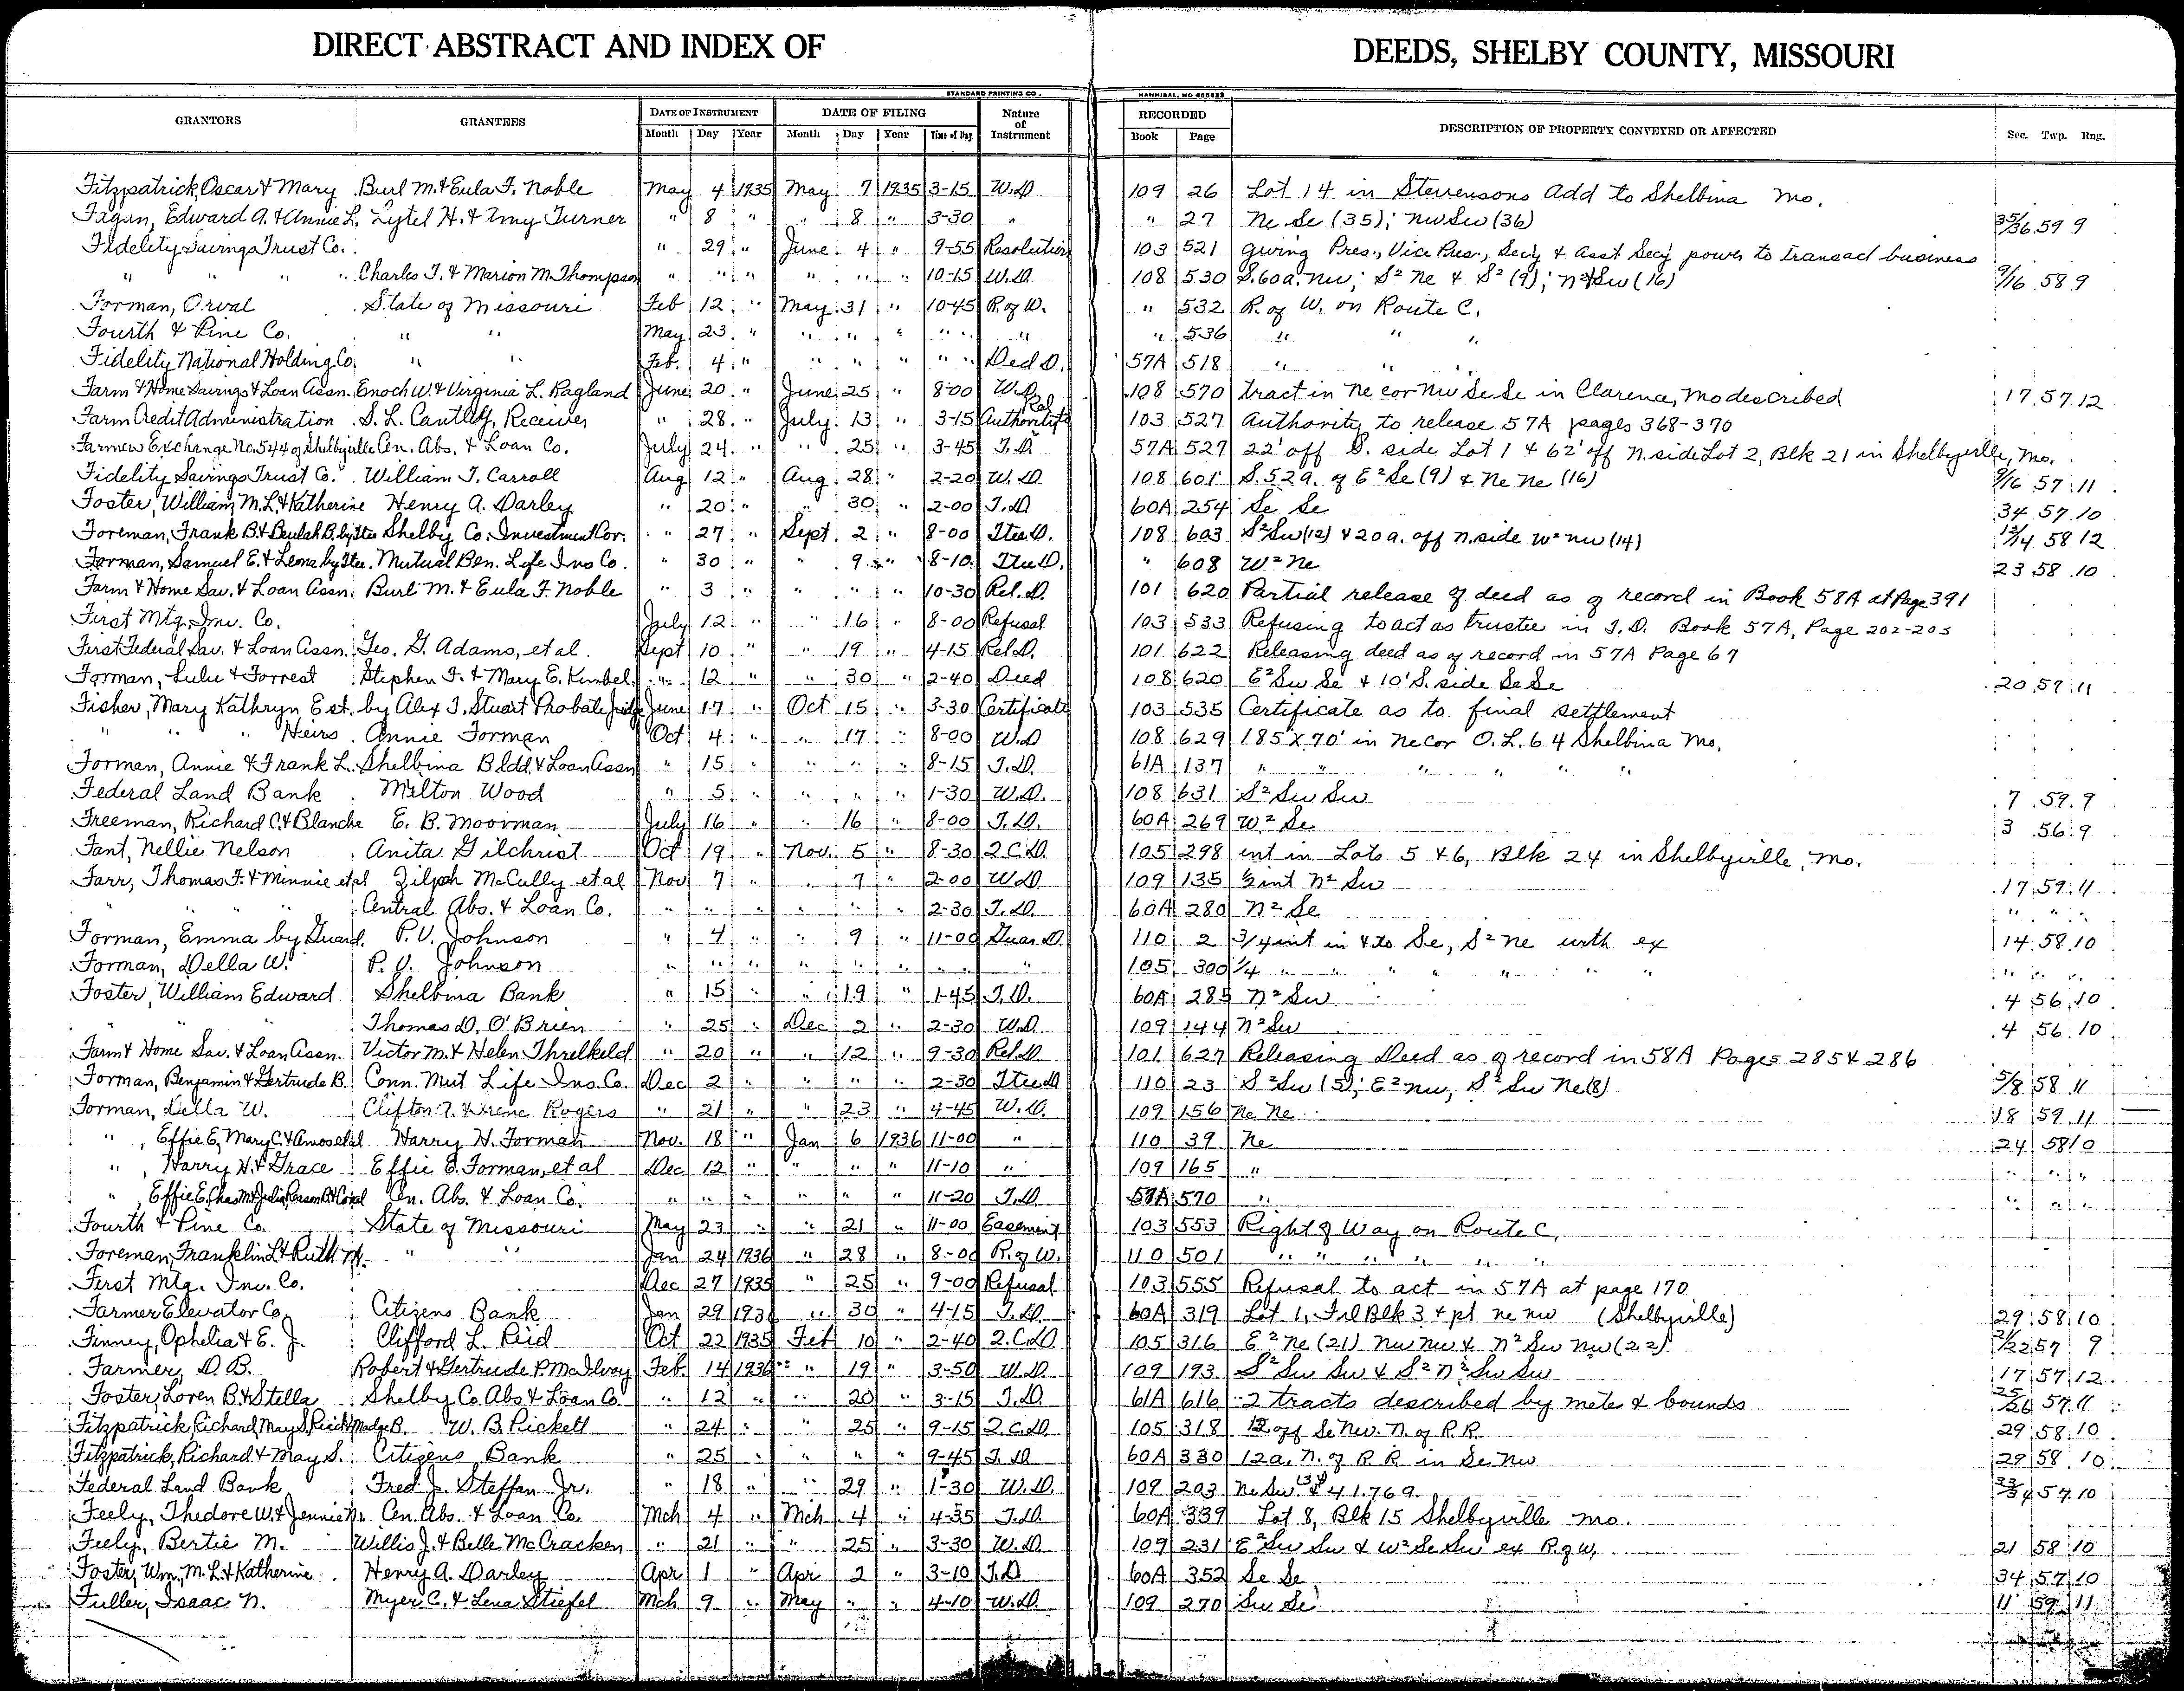 DIRECT ABSTRACT AND INDEX OF DEEDS, SHELBY COUNTY, MISSOURI
STANDARD PRINTING CO. HANNIBAL, MO
GRANTORS GRANTEES DATE OF INSTRUMENT DATE OF FILING Nature of Instrument RECORDED DESCRIPTION OF PROPERTY CONVEYED OR AFFECTED Sec. Twp. Rng.
Month Day Year Month Day Year Time of Day Book Page
Fitzpatrick, Oscar & Mary Burl M. & Eula F. Noble May 4 1935 May 7 1935 3-15 W.D. 109 26 Lot 14 in Stevensons Add to Shelbina Mo.
Fagan, Edward A. & Annie L. Lytel H. & Amy Turner " 8 " " 8 " 3-30 " " 27 Ne Se (35); Nw Sw (36) 35/36 59 9
Fidelity Savings Trust Co. " 29 " June 4 " 9-55 Resolution 103 521 giving Pres., Vice Pres., Sec'y & Asst Sec'y power to transact business
" " " " Charles T. & Marion M. Thompson " " " " " " 10-15 W.D. 108 530 S. 60a. Nw; S² Ne & S² (9); N² Sw (16) 9/16 58 9
Forman, Orval State of Missouri Feb 12 " May 31 " 10-45 R. of W. " 532 R. of W. on Route C.
Fourth & Pine Co. " " May 23 " " " " " " " 536 " " "
Fidelity National Holding Co. " " Feb. 4 " " " " " Ded D. 57A 518 " " "
Farm & Home Savings & Loan Assn. Enoch W. & Virginia L. Ragland June 20 " June 25 " 8-00 W.D. 108 570 tract in Ne cor Nw Se Se in Clarence, Mo described 17 57 12
Farm Credit Administration S. L. Cantley, Receiver " 28 " July 13 " 3-15 Authority to Rel 103 527 Authority to release 57A pages 368-370
Farmers Exchange No. 544 of Shelbyville Cen. Abs. & Loan Co. July 24 " " 25 " 3-45 T.D. 57A 527 22' off S. side Lot 1 & 62' off N. side Lot 2, Blk 21 in Shelbyville, Mo.
Fidelity Savings Trust Co. William T. Carroll Aug 12 " Aug 28 " 2-20 W.D. 108 601 S. 52a. of E² Se (9) & Ne Ne (16) 9/16 57 11
Foster, William M.L. & Katherine Henry A. Darley " 20 " " 30 " 2-00 T.D. 60A 254 Se Se 34 57 10
Foreman, Frank B. & Beulah B. by Ttee Shelby Co. Investment Cor. " 27 " Sept 2 " 8-00 Ttee D. 108 603 S² Sw (12) & 20 a. off N. side W² Nw (14) 12/14 58 12
Forman, Samuel E. & Leona by Ttee. Mutual Ben. Life Ins Co. " 30 " " 9 " 8-10 Ttee D. " 608 W² Ne 23 58 10
Farm & Home Sav. & Loan Assn. Burl M. & Eula F. Noble " 3 " " " " 10-30 Rel. D. 101 620 Partial release of deed as of record in Book 58A at Page 391
First Mtg. Inv. Co. July 12 " " 16 " 8-00 Refusal 103 533 Refusing to act as trustee in T.D. Book 57A, Page 202-203
First Federal Sav. & Loan Assn. Geo. G. Adams, et al. Sept 10 " " 19 " 4-15 Rel. D. 101 622 Releasing deed as of record in 57A Page 67
Forman, Lulu & Forrest Stephen F. & Mary E. Kimbel " 12 " " 30 " 2-40 Deed 108 620 E² Sw Se & 10' S. side Se Se 20 57 11
Fisher, Mary Kathryn Est. by Alex T. Stuart Probate Judge June 17 " Oct 15 " 3-30 Certificate 103 535 Certificate as to final settlement
" " " Heirs Annie Forman Oct 4 " " 17 " 8-00 W.D. 108 629 185' X 70' in Ne cor O.L. 64 Shelbina Mo.
Forman, Annie & Frank L. Shelbina Bldg & Loan Assn " 15 " " " " 8-15 T.D. 61A 137 " " " " " "
Federal Land Bank Milton Wood " 5 " " " " 1-30 W.D. 108 631 S² Sw Sw 7 59 9
Freeman, Richard C. & Blanche E. B. Moorman July 16 " " 16 " 8-00 T.D. 60A 269 W² Se 3 56 9
Fant, Nellie Nelson Anita Gilchrist Oct 19 " Nov. 5 " 8-30 2.C.D. 105 298 int in Lots 5 & 6, Blk 24 in Shelbyville, Mo.
Farr, Thomas F. & Minnie et al Zilpah McCully et al Nov 7 " " 7 " 2-00 W.D. 109 135 ½ int N² Sw 17 59 11
" " " Central Abs. & Loan Co. " " " " " " 2-30 T.D. 60A 280 N² Se " " "
Forman, Emma by Guard. P. V. Johnson " 4 " " 9 " 11-00 Guar D. 110 2 3/4 int in & to Se, S² Ne with ex 14 58 10
Forman, Della W. P. V. Johnson " " " " " " " " 105 300 1/4 " " " " " " " " " "
Foster, William Edward Shelbina Bank " 15 " " 19 " 1-45 T.D. 60A 285 N² Sw 4 56 10
" " Thomas D. O'Brien " 25 " Dec 2 " 2-30 W.D. 109 144 N² Sw 4 56 10
Farm & Home Sav. & Loan Assn. Victor M. & Helen Threlkeld " 20 " " 12 " 9-30 Rel. D. 101 627 Releasing Deed as of record in 58A Pages 285 & 286
Forman, Benjamin & Gertrude B. Conn. Mut Life Ins. Co. Dec 2 " " " " 2-30 Ttee D 110 23 S² Sw (5); E² Nw, S² Sw Ne (8) 5/8 58 11
Forman, Della W. Clifton A. & Irene Rogers " 21 " " 23 " 4-45 W.D. 109 156 Ne Ne 18 59 11
" , Effie E, Mary C. & Amos et al Harry H. Forman Nov. 18 " Jan 6 1936 11-00 " 110 39 Ne 24 58 10
" , Harry H. & Grace Effie E. Forman, et al Dec 12 " " " " 11-10 " 109 165 " " " "
" , Effie E, Chas M & Julia, & Coral Cen. Abs. & Loan Co. " " " " " " 11-20 T.D. 57A 570 " " " "
Fourth & Pine Co. State of Missouri May 23 " " 21 " 11-00 Easement 103 553 Right of Way on Route C.
Foreman, Franklin L. & Ruth M. " " Jan 24 1936 " 28 " 8-00 R. of W. 110 501 " " " " " "
First Mtg. Inv. Co. Dec 27 1935 " 25 " 9-00 Refusal 103 555 Refusal to act in 57A at page 170
Farmer Elevator Co. Citizens Bank Jan 29 1936 " 30 " 4-15 T.D. 60A 319 Lot 1, Frl Blk 3 & pt Ne Nw (Shelbyville) 29 58 10
Finney, Ophelia & E. J. Clifford L. Reid Oct 22 1935 Feb 10 " 2-40 2.C.D. 105 316 E² Ne (21) Nw Nw & N² Sw Nw (22) 21/22 57 9
Farmer, D. B. Robert & Gertrude P. McIlvoy Feb. 14 1936 " 19 " 3-50 W.D. 109 193 S² Sw Sw & S² N² Sw Sw 17 57 12
Foster, Loren B. & Stella Shelby Co. Abs & Loan Co. " 12 " " 20 " 3-15 T.D. 61A 616 2 tracts described by mete & bounds 25/26 57 11
Fitzpatrick, Richard, May S, & Madge B. W. B. Pickett " 24 " " 25 " 9-15 2.C.D. 105 318 12 off Se Nw. N. of R.R. 29 58 10
Fitzpatrick, Richard & May S. Citizens Bank " 25 " " " " 9-45 T.D. 60A 330 12a. N. of R.R. in Se Nw 29 58 10
Federal Land Bank Fred J. Steffan Jr. " 18 " " 29 " 1-30 W.D. 109 203 Ne Sw & 41.76a. 33/34 57 10
Feely, Thedore W. & Jennie M. Cen. Abs. & Loan Co. Mch 4 " Mch 4 " 4-35 T.D. 60A 339 Lot 8, Blk 15 Shelbyville Mo.
Feely, Bertie M. Willis J. & Belle McCracken " 21 " " 25 " 3-30 W.D. 109 231 E² Sw Sw & W² Se Sw ex R. of W. 21 58 10
Foster, Wm. M. L. & Katherine Henry A. Darley Apr 1 " Apr 2 " 3-10 T.D. 60A 352 Se Se 34 57 10
Fuller, Isaac N. Myer C. & Lena Stiefel Mch 9 " May " " 4-10 W.D. 109 270 Sw Se 11 59 11